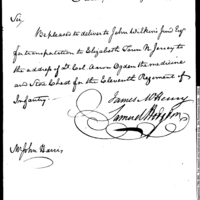 Sir,
Be pleased to deliver to John Wilkins Junr Esqr
for transportation to Elizabeth Town N. Jersey to
the address of Lt. Col. Aaron Ogden the medicine
and Store Chest for the Eleventh Regiment of
Infantry.
James McHenry
Samuel Hodgdon
Mr John Harris